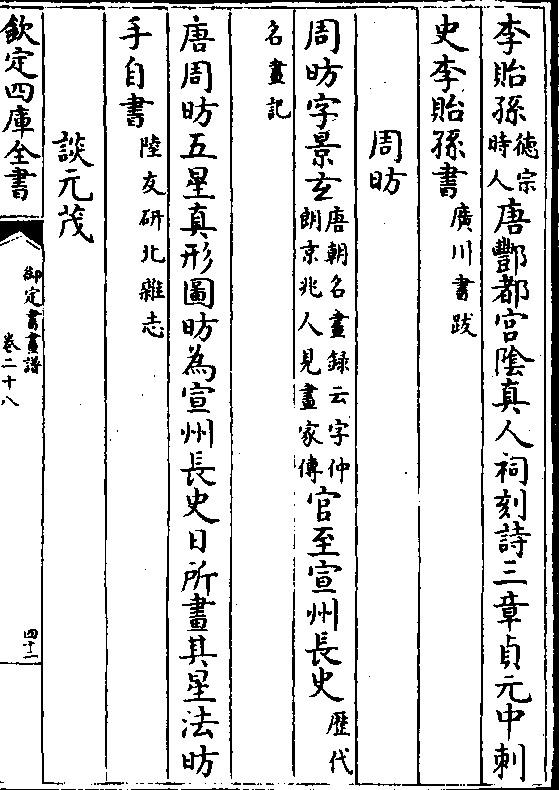 李貽孫德宗時人唐酆都宮陰真人祠刻詩三章貞元中刺
史李貽孫書廣川書跋
周昉
周昉字景玄唐朝名畫録云字仲朗京兆人見畫家傳官至宣州長史歴代
名畫記
唐周昉五星真形圖昉為宣州長史日所畫其星法昉
手自書陸友研北雜志
談元茂
欽定四庫全書
御定書畫譜
卷二十八
四十二